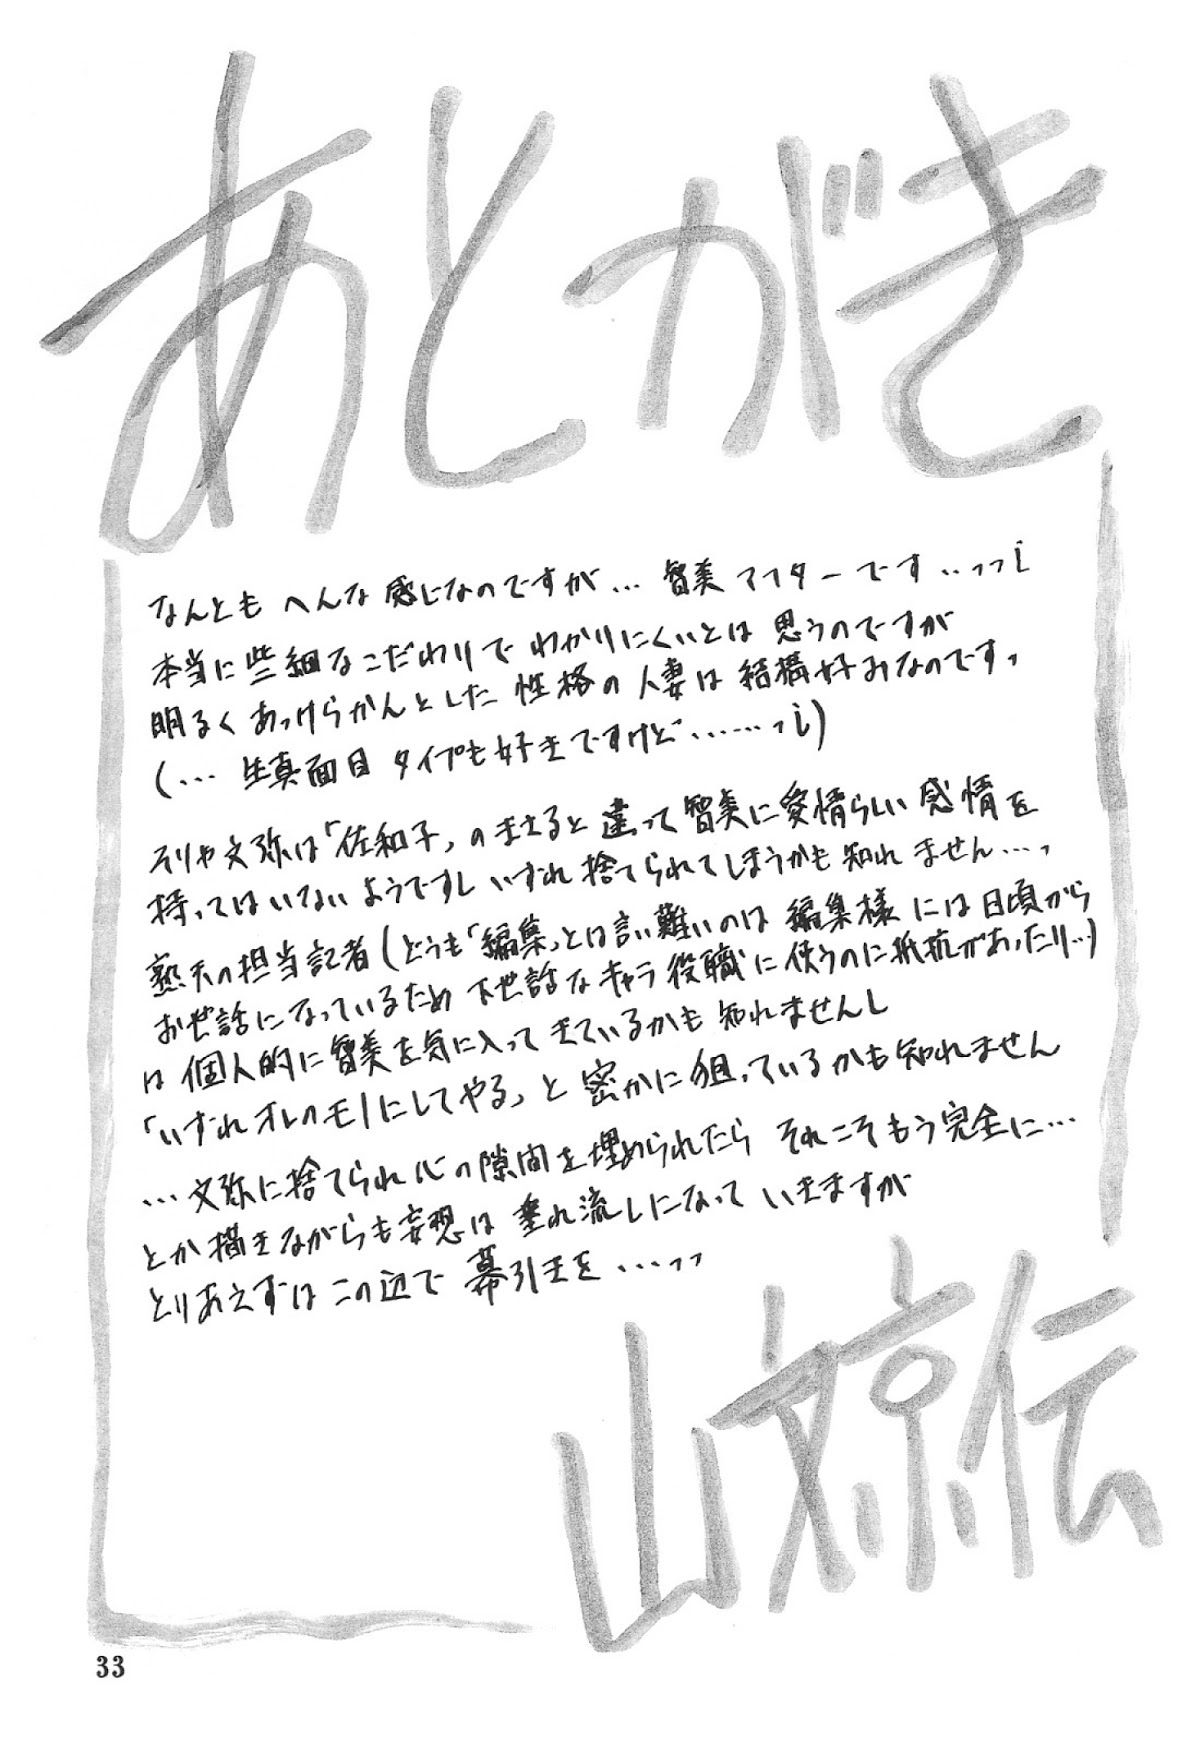 あとがき
なんとも へんな 感じなのですが… 智美 アフターです…っっ;
本当に些細なこだわりで わかりにくいとは 思うのですが
明るく あっけらかんとした 性格の 人妻は 結構好みなのですっ
(… 生真面目 タイプも好きですけど……っ;)
文弥は「佐和子」の まさると 違って 智美に愛情らしい 感情を
持ってはいないようですし いずれ 捨てられてしまうかも 知れ ません…っ
熟天の担当記者(どうも「編集」とは言い難いのは 編集様 には 日頃から
お世話になっているため 下世話な キャラ 役職に 使うのに抵抗があったり…)
は 個人的に智美を気に入って きているかも 知れませんし
「いずれオレのモノにしてやる」と 密かに狙っているかも知れません
…文弥に捨てられ心の隙間を埋められたら それこそもう完全に…
とか描きながらも妄想は 垂れ流しになって いきますが
とりあえずは この辺で 幕引きを…っっ
山文京伝
33